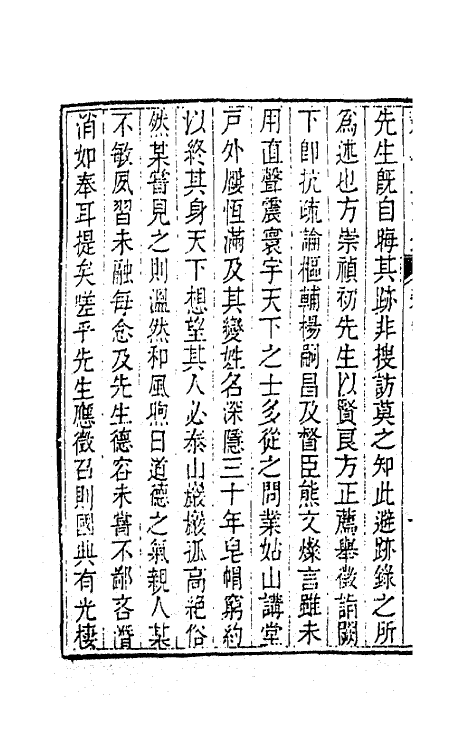 先生旣自晦其跡非搜訪莫之知此避跡錄之所
爲述也方崇禎初先生以賢良方正薦舉徵詣闕
下卽抗疏論樞輔楊嗣昌及督臣熊文燦言雖未
用直聲震寰宇天下之士多從之問業姑山講堂
戸外屨恆滿及其變姓名深隱三十年皂帽窮約
以終其身天下想望其人必泰山巖巖孤高絶俗
然某嘗見之則溫然和風煦日道德之氣親人某
不敏夙習未融每念及先生德容未嘗不鄙吝潛
消如奉耳提矣嗟乎先生應徵召則國典有光棲